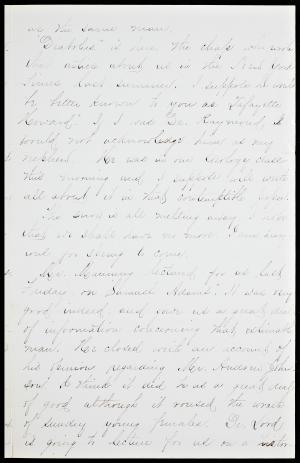 as the same man.
"Diabolus" is here, the chap who wrote
that article about us in the New York
Times last summer. I suppose he would
be better known to you as Lafayette
Howard. If I was Dr. Raymond, I
would not acknowledge him as my
nephew. He was in our Geology class
this morning and I suppose will write
all about it in that contemptible
The snow is all melting away. I hope
that we shall have no more. I am
for Spring to come.
Mr. Manning lectured for us last
Friday on "Samuel Adams". It was very
good indeed, and gave us a great deal
of information concerning that estimable
man. He closed with an account of
his opinion regarding Mr. Andrew John-
son. I think it did us a great deal
of good although it roused the wrath
of sundry young females. Dr. Lord
is going to lecture for us on a